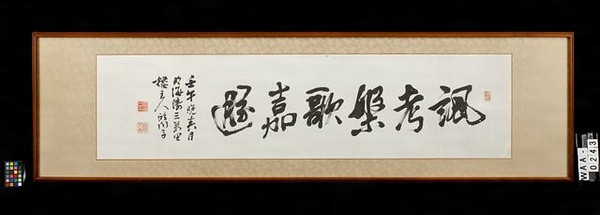 諷考槃歌嘉遯
壬午晚春月
於海濤三萬里
樓主人
WAA-
0243